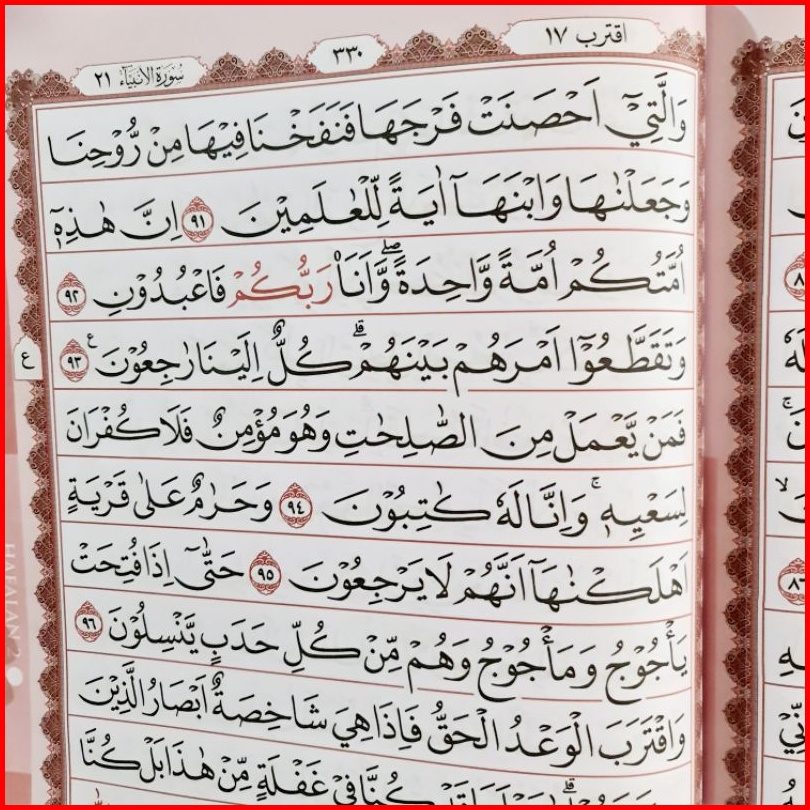 اقترب ١٧
٣٣٠
سُوْرَةُ الْاَنْبِيَاۤءِ ٢١
وَالَّتِيْٓ اَحْصَنَتْ فَرْجَهَا فَنَفَخْنَا فِيْهَا مِنْ رُّوْحِنَا
وَجَعَلْنٰهَا وَابْنَهَآ اٰيَةً لِّلْعٰلَمِيْنَ ٩١ اِنَّ هٰذِهٖٓ
اُمَّتُكُمْ اُمَّةً وَّاحِدَةًۖ وَّاَنَا۠ رَبُّكُمْ فَاعْبُدُوْنِ ٩٢
وَتَقَطَّعُوْٓا اَمْرَهُمْ بَيْنَهُمْۗ كُلٌّ اِلَيْنَا رٰجِعُوْنَ ࣖ ٩٣
ع
فَمَنْ يَّعْمَلْ مِنَ الصّٰلِحٰتِ وَهُوَ مُؤْمِنٌ فَلَا كُفْرَانَ
لِسَعْيِهٖۚ وَاِنَّا لَهٗ كٰتِبُوْنَ ٩٤ وَحَرَامٌ عَلٰى قَرْيَةٍ
اَهْلَكْنٰهَآ اَنَّهُمْ لَا يَرْجِعُوْنَ ٩٥ حَتّٰىٓ اِذَا فُتِحَتْ
يَأْجُوْجُ وَمَأْجُوْجُ وَهُمْ مِّنْ كُلِّ حَدَبٍ يَّنْسِلُوْنَ ٩٦
وَاقْتَرَبَ الْوَعْدُ الْحَقُّ فَاِذَا هِيَ شَاخِصَةٌ اَبْصَارُ الَّذِيْنَ
كُنَّا فِيْ غَفْلَةٍ مِّنْ هٰذَا بَلْ كُنَّا
HAFALAN 2